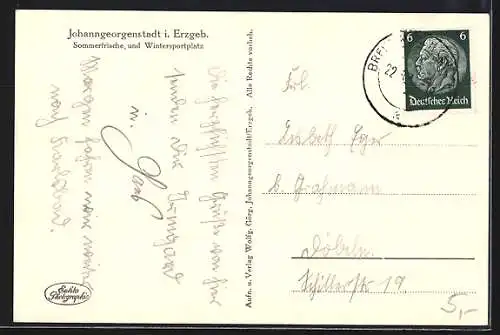 Johanngeorgenstadt i. Erzgeb.
Sommerfrische, und Wintersportplatz
Die herzlichsten Grüße von hier
senden Dir Irmgard
u.
Morgen fahren wir
nach Karlsbad.
Echte
Photographie
Aufn. u. Verlag Wolfg. Görg, Johanngeorgenstadt/Erzgeb. Alle Rechte vorbeh.
6 6
Deutsches Reich
BREI
22
Frl.
Lisbeth Eger
b. Grahmann
Döbeln.
Schillerstr 19
5,-